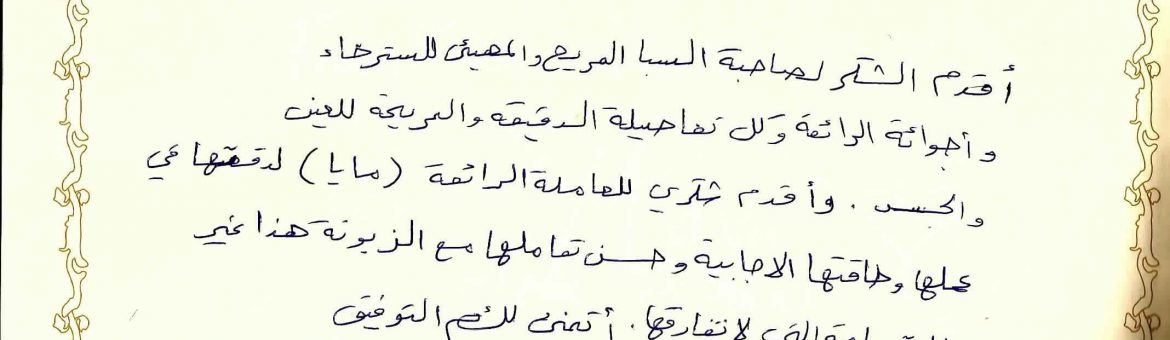 أقدم الشكر لصاحبة السبا المريح والمهيئ للسترخاء
وأجوائة الرائعة وكل تفاصيلة الدقيقة والمريحة للعين
والجسد . وأقدم شكري للعاملة الرائعة (مايا) لدقتها في
عملها وطاقتها الاجابية وحسن تعاملها مع الزبونة هذا غير
التي لا تفارقها . أتمنى لكم التوفيق